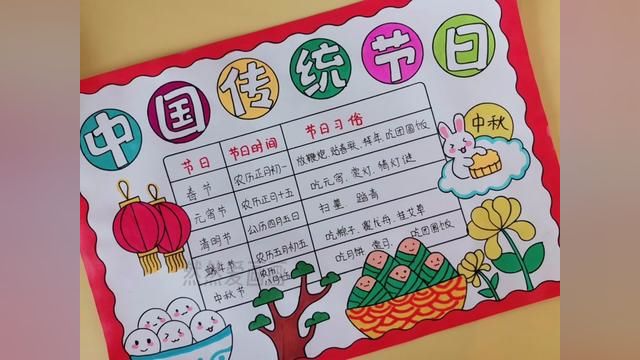 中国传统节日
节日 节日时间 节日习俗
春节 农历正月初一 放鞭炮、贴春联、拜年、吃团圆饭
元宵节 农历正月十五 吃元宵、赏灯、猜灯谜
清明节 公历四月五日 扫墓、踏青
端午节 农历五月初五 吃粽子、赛龙舟、挂艾草
中秋节 农历 吃月饼、赏月、吃团圆饭
中秋